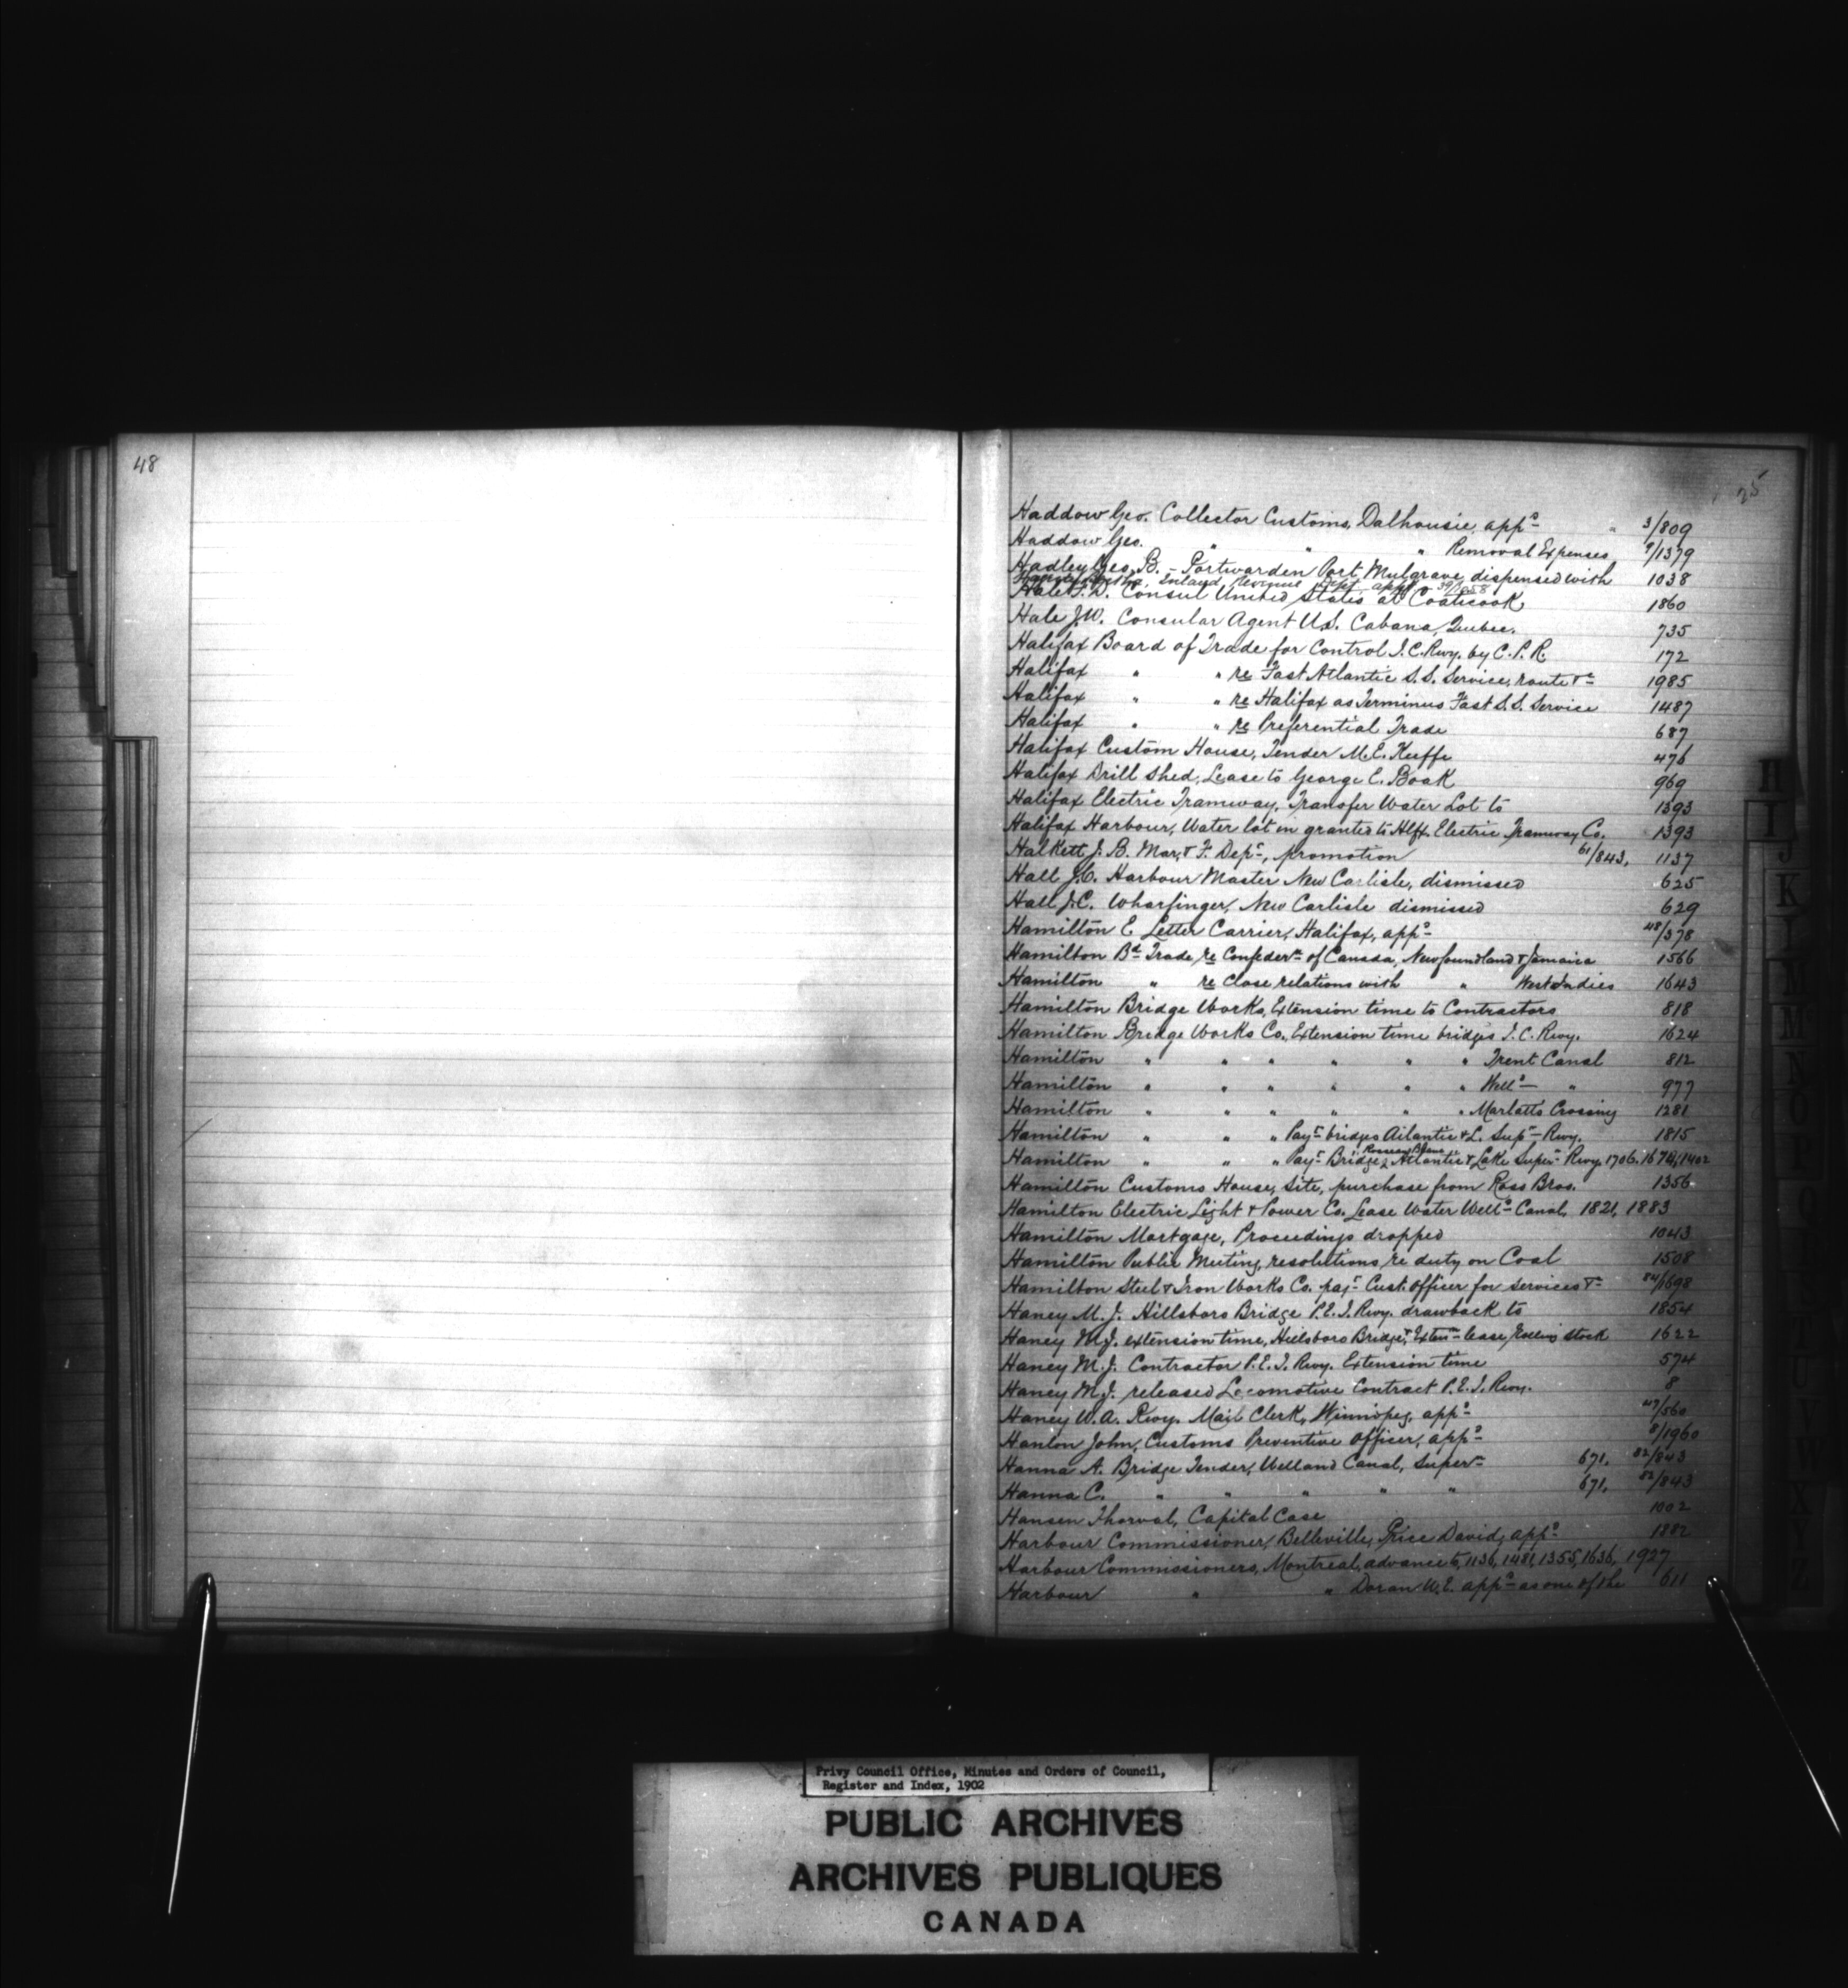 48
25
Haddow Geo. Collector Customs, Dalhousie, app^d " 3/809
Haddow Geo. " " " Removal Expenses 9/1379
Hadley Geo. B. - Portwarden Port Mulgrave, dispensed with 1038
Inland Revenue Dept. app^d 39/1058
Hale F. D. Consul United States at Coaticook 1860
Hale J.W. Consular Agent U.S. Cabana, Quebec. 735
Halifax Board of Trade for Control I.C. Rwy. by C.P.R. 172
Halifax " " re Fast Atlantic S.S. Service, route &c 1985
Halifax " " re Halifax as Terminus Fast S.S. Service 1487
Halifax " " re Preferential Trade 687
Halifax Custom House, Tender M.E. Keeffe 476
Halifax Drill Shed, Lease to George E. Boak 969
Halifax Electric Tramway, Transfer Water Lot to 1393
Halifax Harbour, Water lot in granted to Hlfx. Electric Tramway Co. 1393
Halkett J. B. Mar. & F. Dep^t, promotion 61/843, 1137
Hall J.C. Harbour Master New Carlisle, dismissed 625
Hall J.C. Wharfinger, New Carlisle dismissed 629
Hamilton E Letter Carrier, Halifax, app^d 48/378
Hamilton B^d Trade, re Confeder^n of Canada, Newfoundland & Jamaica 1566
Hamilton " re close relations with " West Indies 1643
Hamilton Bridge Works, Extension time to Contractors 818
Hamilton Bridge Works Co., Extension time bridges I.C. Rwy. 1624
Hamilton " " " " " " Trent Canal 812
Hamilton " " " " " " Well^d " 977
Hamilton " " " " " " Marlatts Crossing 1281
Hamilton " " " Pay^t bridges Atlantic & L. Sup^r Rwy. 1815
Hamilton " " " Pay^t Bridges, Atlantic & Lake Super^r Rwy, 1706. 1674, 1402
Hamilton Customs House, site, purchase from Ross Bros. 1356
Hamilton Electric Light & Power Co. Lease Water Well^d Canal, 1821, 1883
Hamilton Mortgage, Proceedings dropped 1043
Hamilton Public Meeting, resolutions, re duty on Coal 1508
Hamilton Steel & Iron Works Co. pay^t Cust. officer for services &c 84/1698
Haney M. J. Hillsboro Bridge P.E.I. Rwy. drawback to 1854
Haney M.J. extension time, Hillsboro Bridge, & Exten^n lease, Rolling stock 1622
Haney M. J. Contractor P.E.I. Rwy. Extension time 574
Haney M.J. released Locomotive Contract P.E.I. Rwy. 8
Haney W.A. Rwy. Mail Clerk, Winnipeg, app^d 47/560
Hanlon John, Customs Preventive Officer, app^d 8/1960
Hanna A. Bridge Tender, Welland Canal, Super^n 671, 82/843
Hanna C. " " " " " 671, 82/843
Hansen Thorval, Capital Case 1002
Harbour Commissioner, Belleville, Price David, app^d 1882
Harbour Commissioners, Montreal, advance to, 1136, 1481, 1355, 1636, 1927
Harbour " " Doran W.E. app^d as one of the 611
H
I
J
K
M
Privy Council Office, Minutes and Orders of Council,
Register and Index, 1902
PUBLIC ARCHIVES
ARCHIVES PUBLIQUES
CANADA